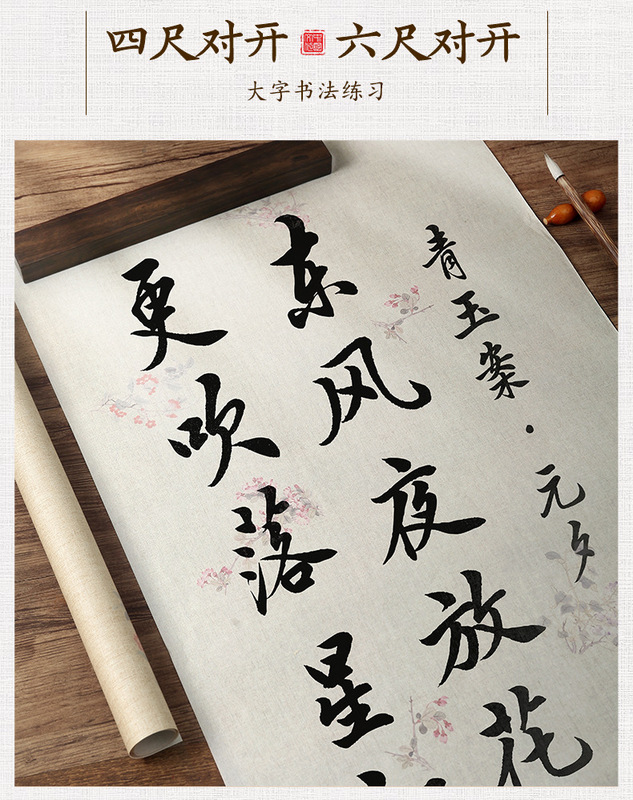 四尺对开 六尺对开
大字书法练习
青玉案·元夕
东风夜放花
更吹落星